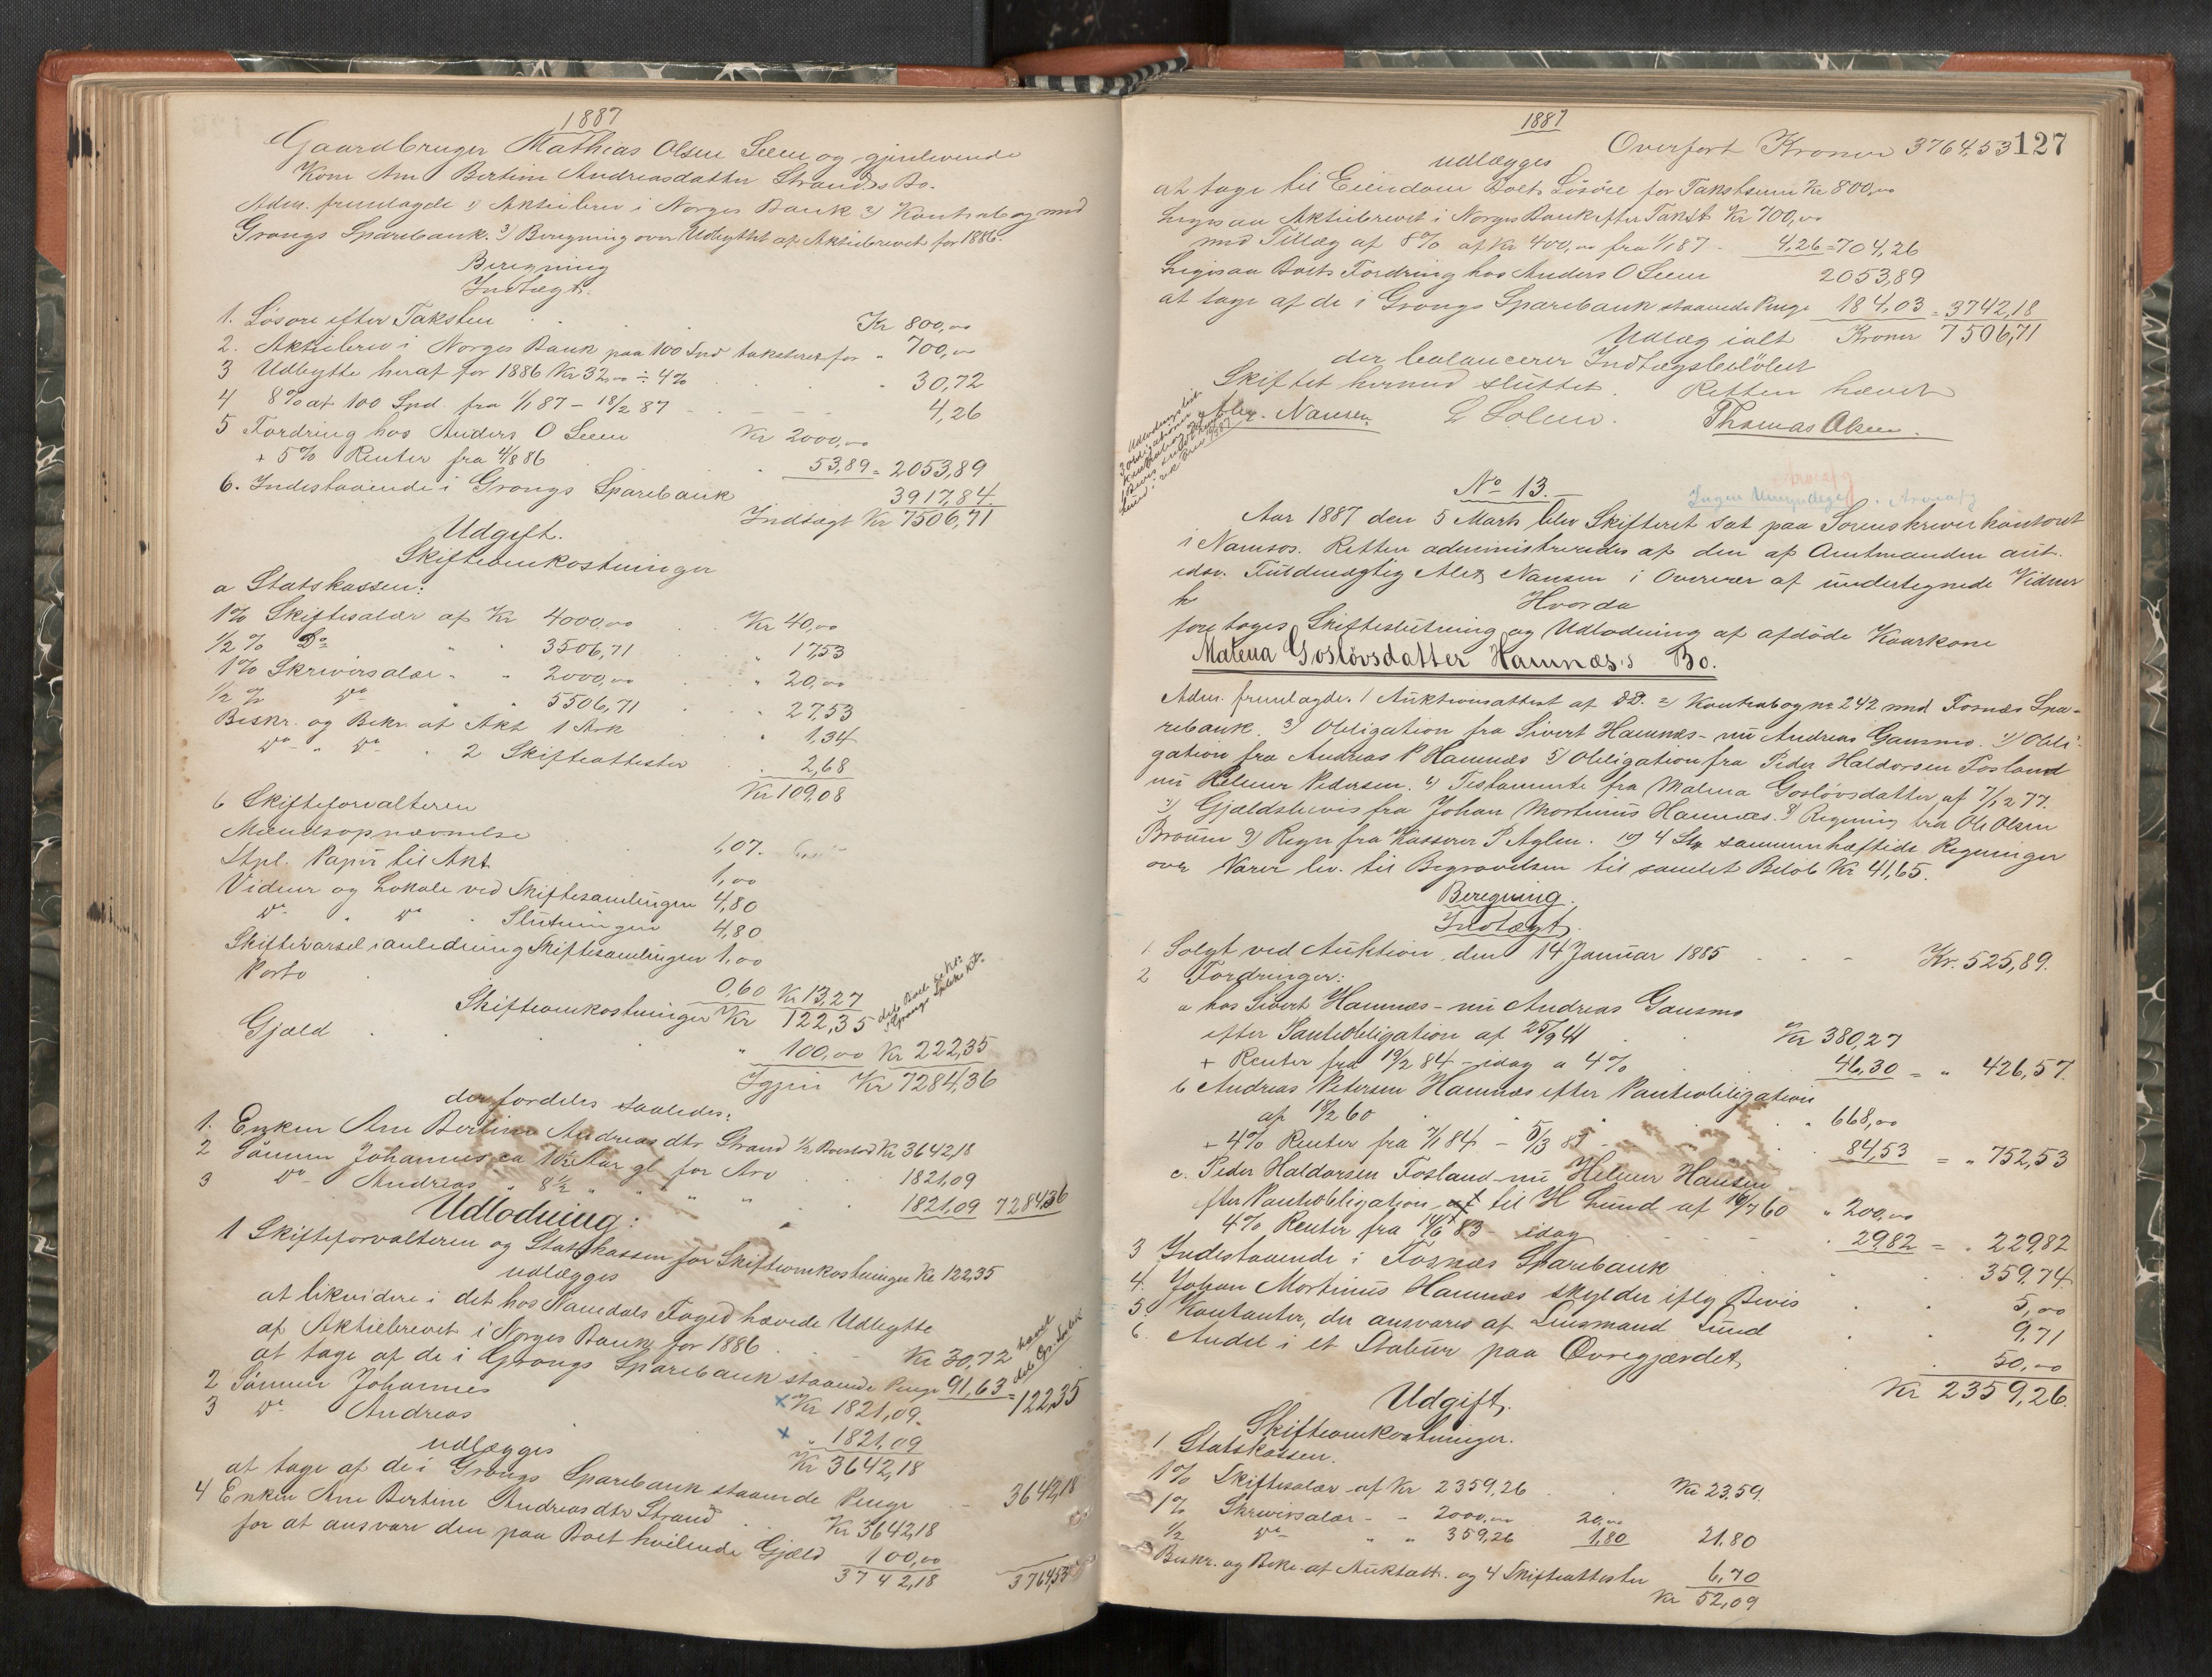 1887
Gaardbruger Mathias Olsen Seem og gjenlevende
Kone Ane Bertine Andreasdatter Strands Bo.
Adm. fremlagde 1) Aktiebrev i Norges Bank 2) Kontrabog med
Grongs Sparebank. 3) Beregning over Udbyttet af Aktiebrevet for 1886.
Beregning
Indtægt.
1. Løsøre efter Taksten Kr 800,00
2. Aktiebrev i Norges Bank paa 100 Spd taksteret for " 700,00
3 Udbytte heraf for 1886 Kr 32,00 ÷ 4% " 30,72
4 8% af 100 Spd. fra 1/1 87 - 18/2 87 4,26
5 Fordring hos Anders O Seem Kr 2000,00
+ 5% Renter fra 4/8 86 " 53,89 = 2053,89
6. Indestaaende i Grongs Sparebank 3917,84.
Indtægt Kr 7506,71
Udgift.
Skifteomkostninger
a Statskassen:
1% Skiftesalær af Kr 4000,00 Kr 40,00
1/2 % Do " " 3506,71 " 17,53
1% Skriversalær " " 2000,00 " 20,00
1/2 % do " " 5506,71 " 27,53
Beskr. og Bekr. af Akt 1 Ark " 1,34
do " do " 2 Skifteattester " 2,68
Kr 109,08
b Skifteforvalteren
Mændsopnævnelse 1,07.
Stpl. Papir til Akt 1,00
Vidner og Lokale ved Skiftesamlingen 4,80
do " do " Slutningen 4,80
Skiftevarsel i anledning Skiftesamlingen 1,00
Porto 0,60 Kr 13,27
Skifteomkostninger Kr 122,35
Gjæld " 100,00 Kr 222,35
Igjen Kr 7284,36
der fordeles saaledes:
1. Enken Ane Bertine Andreasdtr Strand 1/2 Boeslod Kr 3642,18
2 Sønnen Johannes ca 10 1/2 Aar gl for Arv 1821,09
3 do Andreas " 8 1/2 " " " " 1821,09 7284,36
Udlodning:
1 Skifteforvalteren og Statskassen for Skifteomkostninger Kr 122,35
udlægges
at likvidere i det hos Namdals Foged hævede Udbytte
af Aktiebrevet i Norges Bank for 1886 Kr 30,72
at tage af de i Grongs Sparebank staaende Penge 91,63 = 122,35
2 Sønnen Johannes x Kr 1821,09.
3 do Andreas x " 1821,09
Kr 3642,18
udlægges
at tage af de i Grongs Sparebank staaende Penge 3642,18
4 Enken Ane Bertine Andreasdtr Strand Kr 3642,18
for at ansvare den paa Boet hvilende Gjæld 100,00
3742,18 3764,53
1887
127
Overført Kroner 3764,53
udlægges
at tage til Eiendom Boets Løsøre for Takstsum Kr 800,00
Ligesaa Aktiebrevet i Norges Bank efter Takst Kr 700,00
med Tillæg af 8% af Kr 400,00 fra 1/1 87 - 4,26 = 704,26
Ligesaa Boets Fordring hos Anders O Seem 2053,89
at tage af de i Grongs Sparebank staaende Penge 184,03 = 3742,18
Udlæg ialt Kroner 7506,71
der balancerer Indtægsbeløbet
Skiftet hermed sluttet. Retten hævet
Alex. Nansen. L Solem. Thomas Olsen.
No 13.
Ingen Umyndige.
Aar 1887 den 5 Marts blev Skifteret sat paa Sorenskriverkontoret
i Namsos. Retten administreredes af den af Amtmanden aut.
edsv. Fuldmægtig Alex Nansen i Overvær af undertegnede Vidner
Hvorda
foretoges Skifteslutning og Udlodning af afdøde Kaarkone
Malena Gosløvsdatter Hamnæs's Bo.
Adm. fremlagde. 1 Auktionsattest af DD. 2) Kontrabog no 242 med Fosnæs Spa-
rebank. 3) Obligation fra Sivert Hamnæs - nu Andreas Gansmo. 4) Obli-
gation fra Andreas P Hamnæs 5) Obligation fra Peder Haldorsen Fosland
nu Helmer Pedersen. 6) Testamente fra Malena Gosløvsdatter af 7/12 77.
7) Gjældsbevis fra Johan Mortinus Hamnæs. 8) Regning fra Ole Olsen
Braum 9) Regn fra Kasserer P Aglen. 10) 4 Stk sammenhæftede Regninger
over Varer lev. til Begravelsen til samlet Beløb Kr 41,65.
Beregning.
Indtægt.
1 Solgt ved Auktion den 14 Januar 1885 Kr. 525,89.
2 Fordringer:
a hos Sivert Hamnæs - nu Andreas Gansmo
efter Pantobligation af 25/9 41 Kr 380,27
+ Renter fra 19/2 84 - idag a 4% 46,30 = " 426,57.
b Andreas Pedersen Hamnæs efter Pantobligation
af 18/2 60 " 668,00
+ 4% Renter fra 7/1 84 - 5/3 87 84,53 = " 752,53
c. Peder Haldorsen Fosland - nu Helmer Hansen
efter Pantobligation til H Lund af 16/7 60 " 200,00
4% Renter fra 14/6 83 - idag 29,82 = " 229,82
3 Indestaaende i Fosnæs Sparebank 359,74
4. Johan Mortinus Hamnæs skylder iflg Bevis 5,00
5. Kontanter, der ansvares af Lensmand Lund 9,71
6. Andel i et Stabur paa Øvregjærdet 50,00
Kr 2359,26.
Udgift.
Skifteomkostninger.
1 Statskassen.
1% Skiftesalær af Kr 2359,26 Kr 23,59.
1% Skriversalær - - 2000,00 20,00
1/2 do " " 359,26 1,80 21,80
Beskr. og Bekr af Auktatt. og 4 Skifteattester 6,70
Kr 52,09